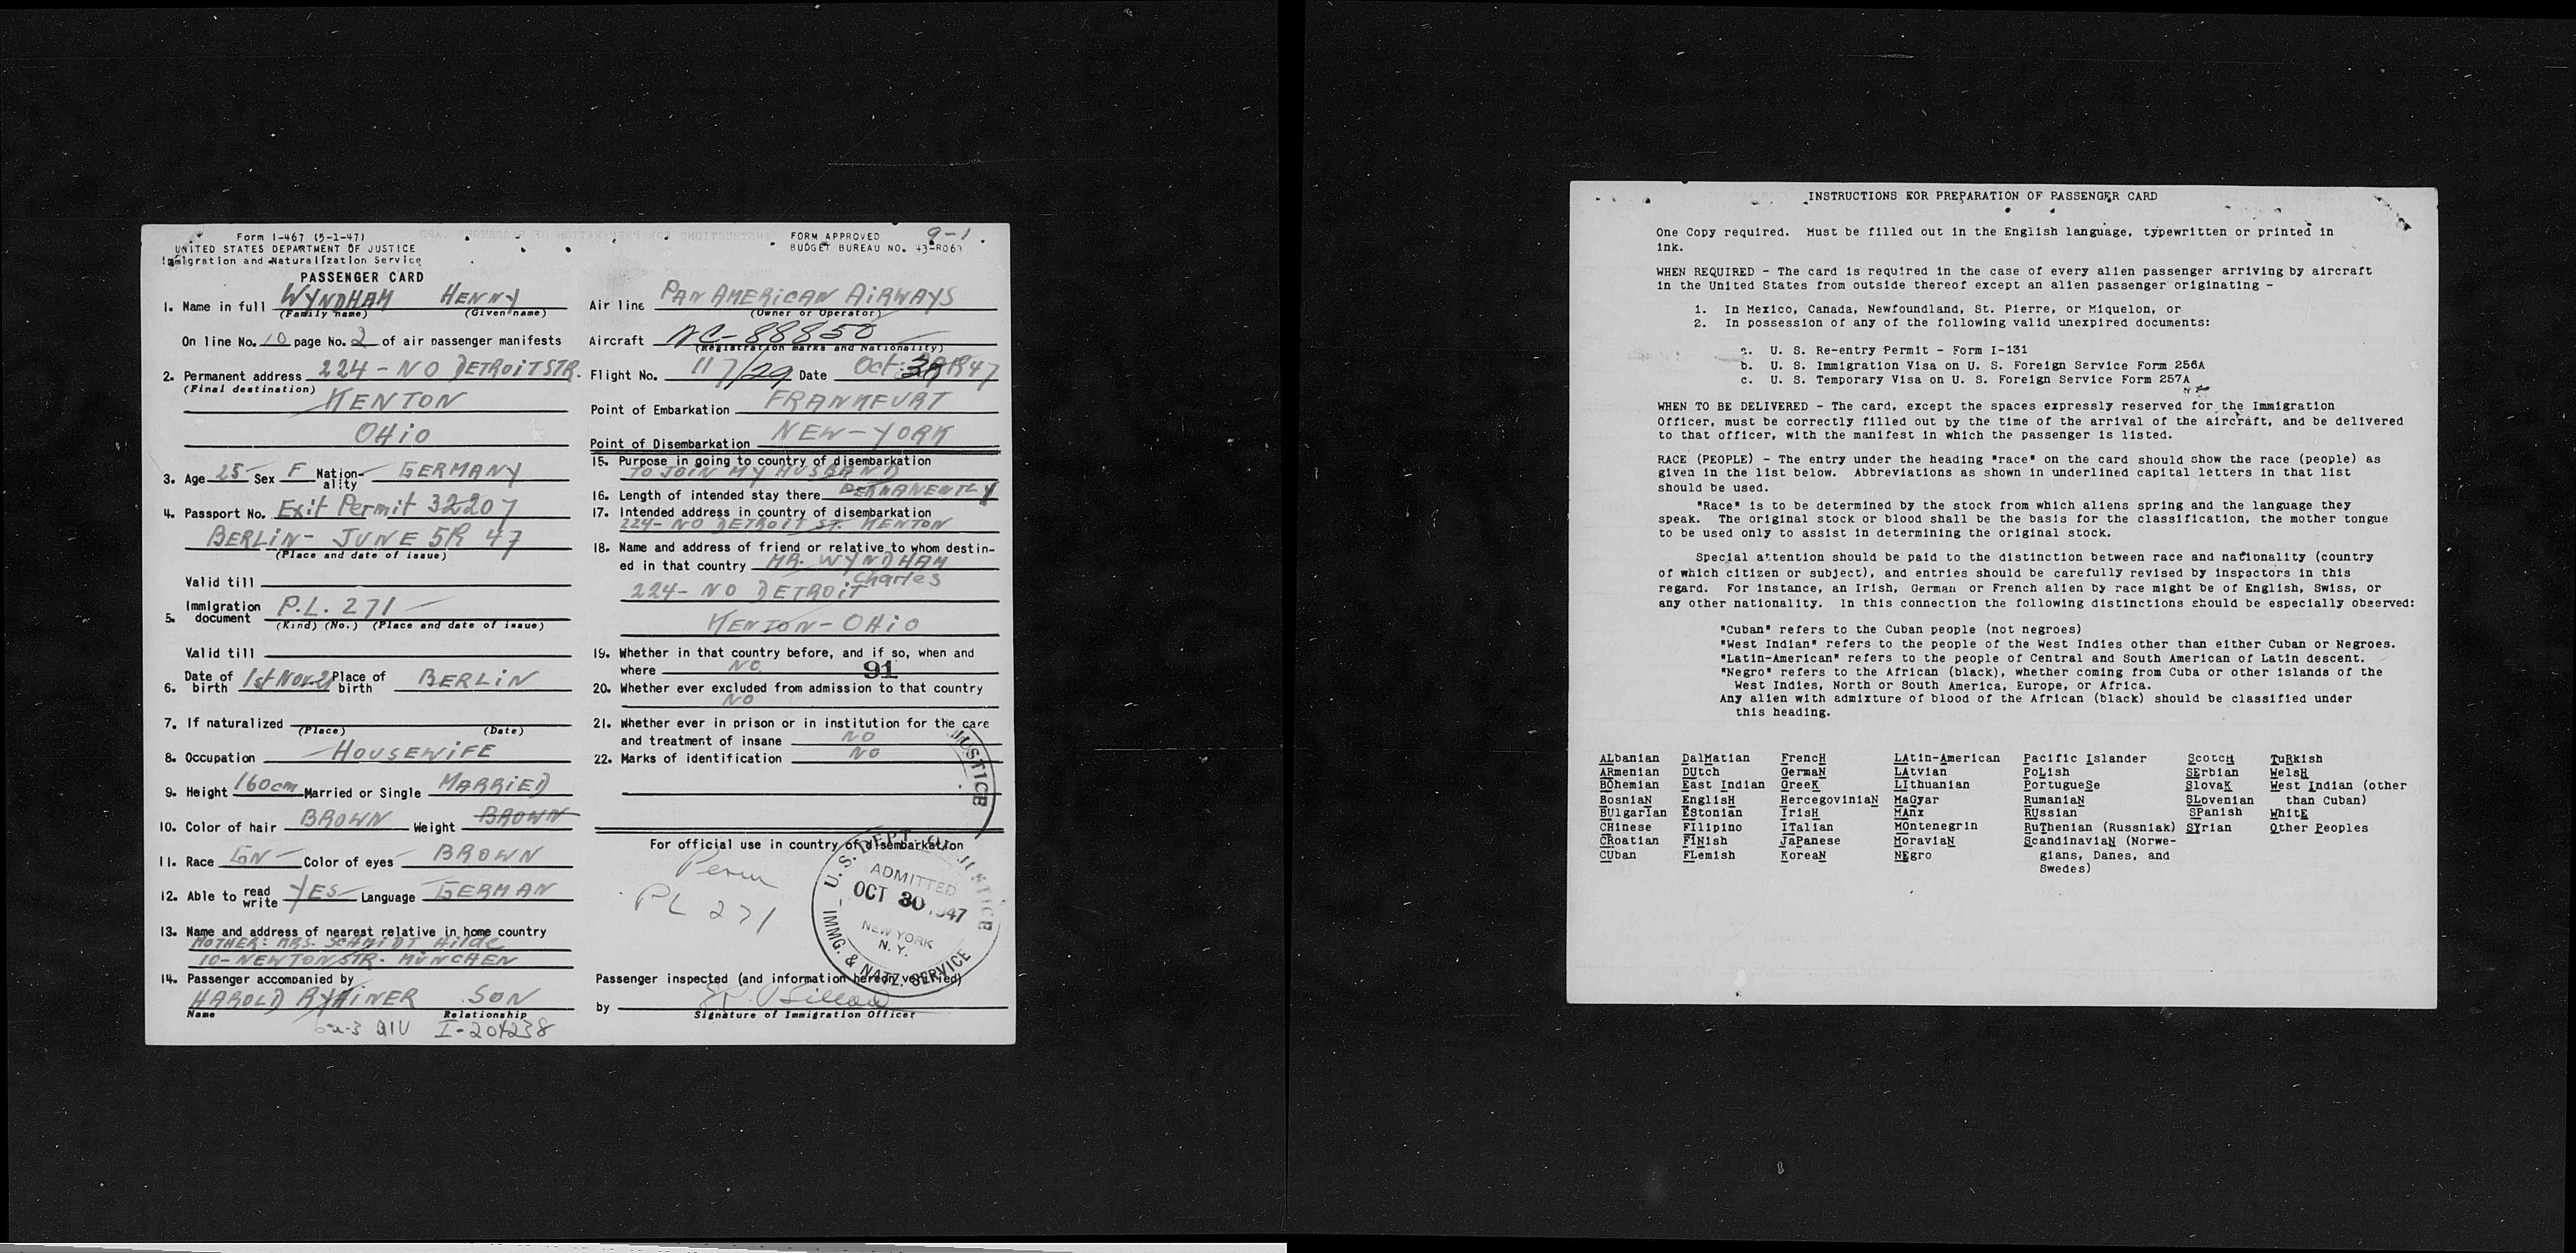 Form I-467 (5-1-47)
UNITED STATES DEPARTMENT OF JUSTICE
Immigration and Naturalization Service
PASSENGER CARD
FORM APPROVED
BUDGET BUREAU NO. 43-R063
9-1
1. Name in full WYNDHAM HENNY
(Family name) (Given name)
On line No. 10 page No. 2 of air passenger manifests
2. Permanent address 224-NO DETROIT STR.
(Final destination)
KENTON
OHIO
3. Age 25 Sex F Nation-ality GERMANY
4. Passport No. Exit Permit 32207
BERLIN- JUNE 5R 47
(Place and date of issue)
Valid till
5. Immigration document P.L. 271
(Kind) (No.) (Place and date of issue)
Valid till
6. Date of birth 1st Nov. 21 Place of birth BERLIN
7. If naturalized
(Place) (Date)
8. Occupation HOUSEWIFE
9. Height 160cm Married or Single MARRIED
10. Color of hair BROWN Weight BROWN
11. Race GN Color of eyes BROWN
12. Able to read write YES Language GERMAN
13. Name and address of nearest relative in home country
MOTHER: MRS. SCHMIDT Hilde
10-NEWTONSTR. MÜNCHEN
14. Passenger accompanied by
HAROLD SON
Name Relationship
I-204238
Air line PAN AMERICAN AIRWAYS
(Owner or Operator)
Aircraft NC-88850
(Registration marks and Nationality)
Flight No. 117/29 Date Oct. 1947
Point of Embarkation FRANKFURT
Point of Disembarkation NEW-YORK
15. Purpose in going to country of disembarkation
TO JOIN MY HUSBAND
16. Length of intended stay there PERMANENTLY
17. Intended address in country of disembarkation
224-NO DETROIT ST. KENTON
18. Name and address of friend or relative to whom destin-
ed in that country MR. WYNDHAM
Charles
224-NO DETROIT
KENTON-OHIO
19. Whether in that country before, and if so, when and
where NO 91
20. Whether ever excluded from admission to that country
NO
21. Whether ever in prison or in institution for the care
and treatment of insane NO
22. Marks of identification NO
JUSTICE
For official use in country of disembarkation
Perm
PL 271
U.S. DEPT. OF JUSTICE
ADMITTED
OCT 30 1947
NEW YORK
N. Y.
IMMG. & NATZ. SERVICE
Passenger inspected (and information hereon verified)
by
Signature of Immigration Officer
INSTRUCTIONS FOR PREPARATION OF PASSENGER CARD
One Copy required. Must be filled out in the English language, typewritten or printed in
ink.
WHEN REQUIRED - The card is required in the case of every alien passenger arriving by aircraft
in the United States from outside thereof except an alien passenger originating -
1. In Mexico, Canada, Newfoundland, St. Pierre, or Miquelon, or
2. In possession of any of the following valid unexpired documents:
a. U. S. Re-entry Permit - Form I-131
b. U. S. Immigration Visa on U. S. Foreign Service Form 256A
c. U. S. Temporary Visa on U. S. Foreign Service Form 257A
WHEN TO BE DELIVERED - The card, except the spaces expressly reserved for the Immigration
Officer, must be correctly filled out by the time of the arrival of the aircraft, and be delivered
to that officer, with the manifest in which the passenger is listed.
RACE (PEOPLE) - The entry under the heading "race" on the card should show the race (people) as
given in the list below. Abbreviations as shown in underlined capital letters in that list
should be used.
"Race" is to be determined by the stock from which aliens spring and the language they
speak. The original stock or blood shall be the basis for the classification, the mother tongue
to be used only to assist in determining the original stock.
Special attention should be paid to the distinction between race and nationality (country
of which citizen or subject), and entries should be carefully revised by inspectors in this
regard. For instance, an Irish, German or French alien by race might be of English, Swiss, or
any other nationality. In this connection the following distinctions should be especially observed:
"Cuban" refers to the Cuban people (not negroes)
"West Indian" refers to the people of the West Indies other than either Cuban or Negroes.
"Latin-American" refers to the people of Central and South American of Latin descent.
"Negro" refers to the African (black), whether coming from Cuba or other islands of the
West Indies, North or South America, Europe, or Africa.
Any alien with admixture of blood of the African (black) should be classified under
this heading.
ALbanian DalMatian FrencH LAtin-American Pacific Islander ScotcH TuRkish
ARmenian DUtch GermaN LAtvian PoLish SErbian WelsH
BOhemian East Indian GreeK LIthuanian PortugueSe SlovaK West Indian (other
BosniaN EnglisH HercegoviniaN MaGyar RumaniaN SLovenian than Cuban)
BUlgarian EStonian IrisH MAnx RUssian SPanish WhitE
CHinese FIlipino ITalian MOntenegrin RuThenian (Russniak) SYrian Other Peoples
CRoatian FINish JaPanese MoraviaN ScandinaviaN (Norwe-
CUban FLemish KoreaN NEgro gians, Danes, and
Swedes)